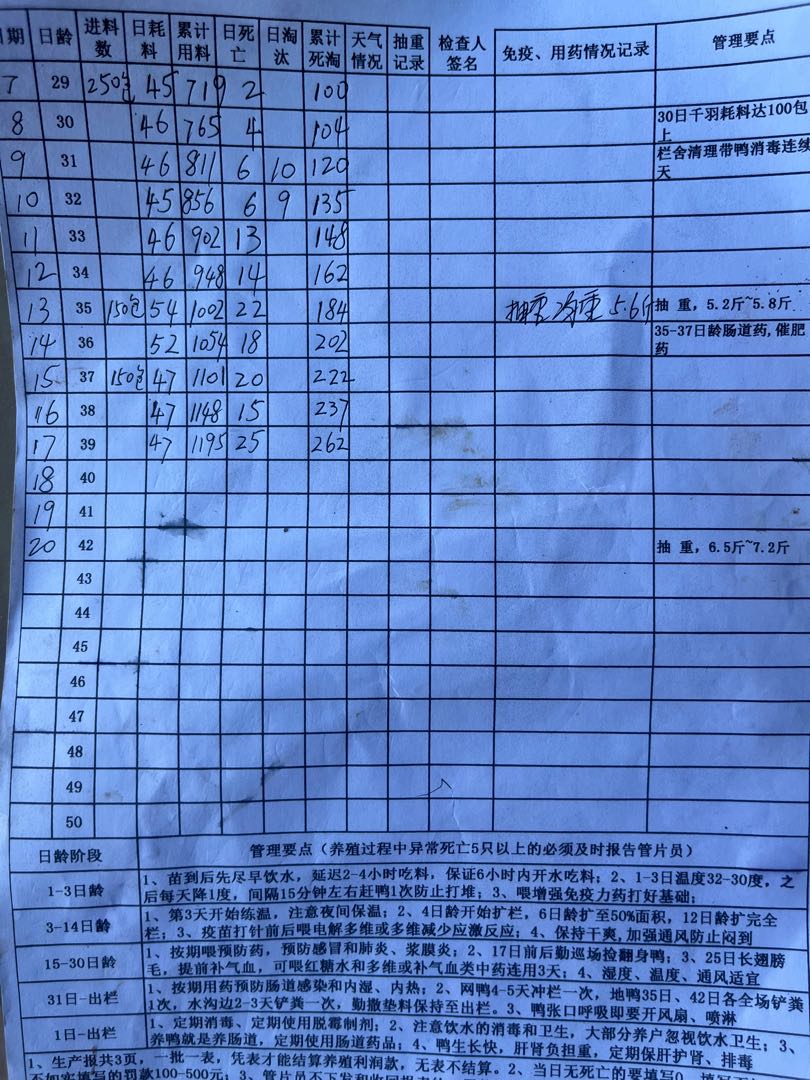 日期 日龄 进料数 日耗料 累计用料 日死亡 日淘汰 累计死淘 天气情况 抽重记录 检查人签名 免疫、用药情况记录 管理要点
7 29 250包 45 719 2 100
8 30 46 765 4 104 30日千羽耗料达100包上
9 31 46 811 6 10 120 栏舍清理带鸭消毒连续天
10 32 45 856 6 9 135
11 33 46 902 13 148
12 34 46 948 14 162
13 35 150包 54 1002 22 184 抽重 净重 5.6斤 抽 重，5.2斤~5.8斤
14 36 52 1054 18 202 35-37日龄肠道药,催肥药
15 37 150包 47 1101 20 222
16 38 47 1148 15 237
17 39 47 1195 25 262
18 40
19 41
20 42 抽 重，6.5斤~7.2斤
43
44
45
46
47
48
49
50
日龄阶段 管理要点（养殖过程中异常死亡5只以上的必须及时报告管片员）
1-3日龄 1、苗到后先尽早饮水，延迟2-4小时吃料，保证6小时内开水吃料；2、1-3日温度32-30度，之
后每天降1度，间隔15分钟左右赶鸭1次防止打堆；3、喂增强免疫力药打好基础；
3-14日龄 1、第3天开始练温，注意夜间保温；2、4日龄开始扩栏，6日龄扩至50%面积，12日龄扩完全
栏；3、疫苗打针前后喂电解多维或多维减少应激反应；4、保持干爽,加强通风防止闷到
15-30日龄 1、按期喂预防药，预防感冒和肺炎、浆膜炎；2、17日前后勤巡场捡翻身鸭；3、25日长翅膀
毛，提前补气血，可喂红糖水和多维或补气血类中药连用3天；4、湿度、温度、通风适宜
31日-出栏 1、按期用药预防肠道感染和内湿、内热；2、网鸭4-5天冲栏一次，地鸭35日、42日各全场铲粪
1次，水沟边2-3天铲粪一次，勤撒垫料保持至出栏。3、鸭张口呼吸即要开风扇、喷淋
1日-出栏 1、定期消毒、定期使用脱霉制剂；2、注意饮水的消毒和卫生，大部分养户忽视饮水卫生；3、
养鸭就是养肠道，定期使用肠道药品；4、鸭生长快，肝肾负担重，定期保肝护肾、排毒
1、生产报共3页，一批一表，凭表才能结算养殖利润款，无表不结算。2、当日无死亡的要填写0，
不如实填写的罚款100-500元；3、管片员不下发和收回报表的